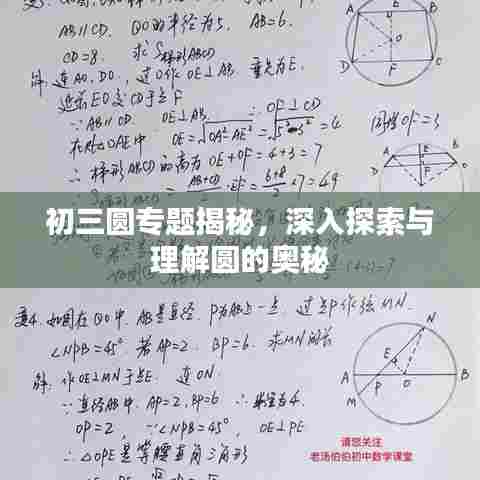 AB∥CD. ⊙O的半径为5, AB=6
CD=8. 求S梯形ABCD
解: 连AO, DO, 过O作OE⊥AB. 垂足为E.
延长EO交CD于点F
∵AB∥CD OE⊥AB. ∴OF⊥CD
在Rt△OAE中 OE=√OA²-AE²=√5²-3²=4 同理OF=3
∴梯形ABCD的高为OE+OF=4+3=7
初三圆专题揭秘,深入探索与
理解圆的奥秘
变4. 如图在⊙O中. AB是直径. P为AB上一点. 过点P作弦MN.
∠NPB=45° 若AP=2. BP=6. 求MN的长
解: 作OE⊥MN于点E. 连ON.
∵直径AB中. AP=2, BP=6 ∴半径为4.
OP=2 ∵∠NPB=45°, OE⊥PE
∴△OPE是等腰直角三角形
A
B
E
O
D
F
C
N
E
4
A
M
P
O
B
请您关注
老汤伯伯初中数学课堂